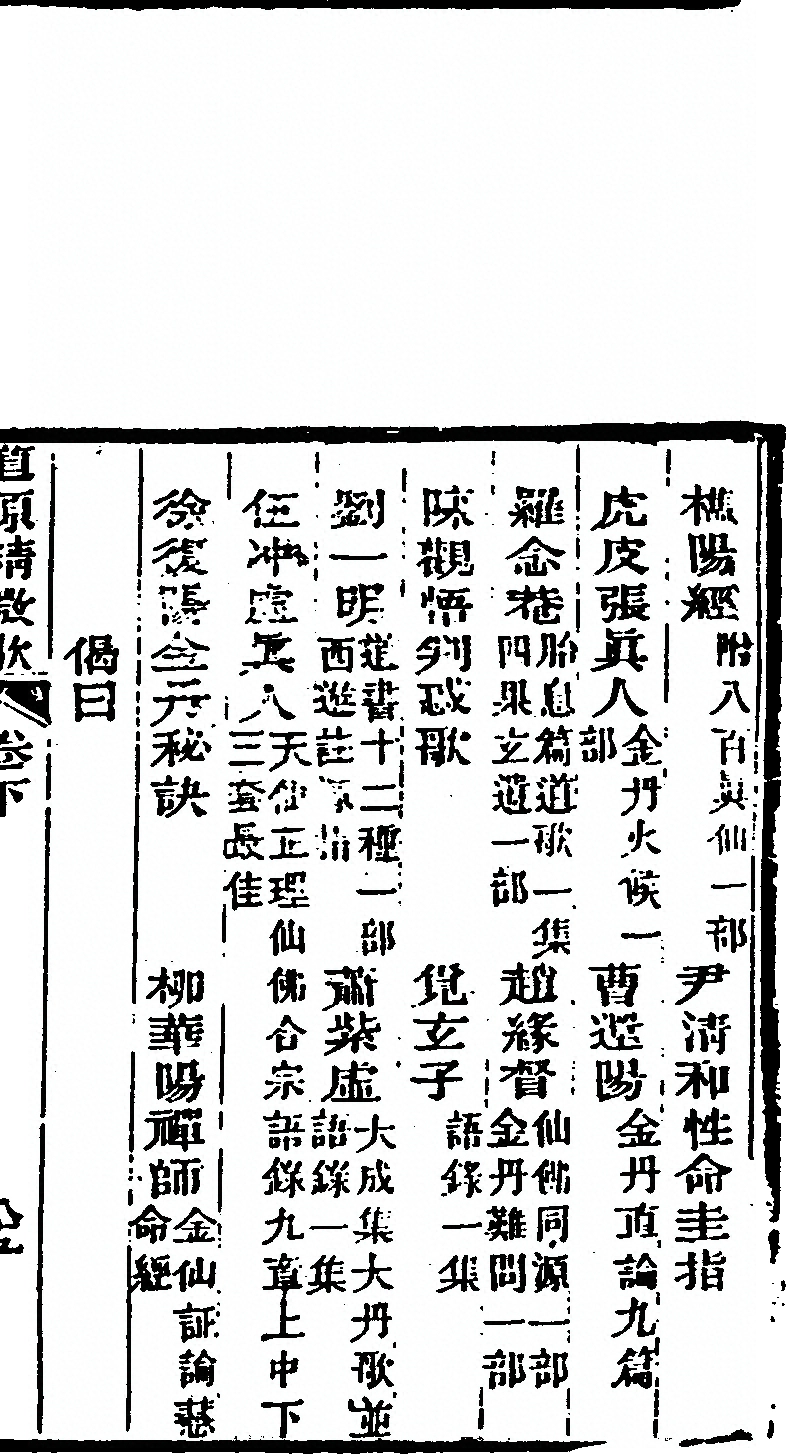 樵陽經附八百眞仙一部 尹清和性命圭指
虎皮張眞人金丹火候一部 曹還陽金丹直論九篇
羅念菴胎息篇道歌一集四果玄道一部 趙緣督仙佛同源一部金丹難問一部
陳觀悟判惑歌 覺玄子語錄一集
劉一明道書十二種一部西遊註原指 蕭紫虛大成集大丹歌並語錄一集
伍冲虛眞人天仙正理仙佛合宗語錄九章上中下三套長佳
徐復陽金丹秘訣 柳華陽禪師金仙証論慧命經
偈曰
道原清微 卷下